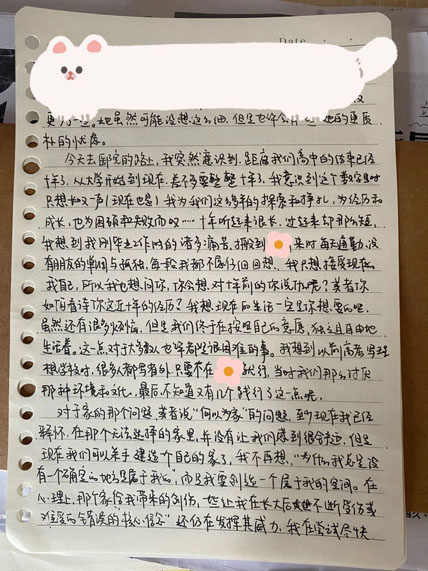 Date
更为一些。她虽然可能没想这么细,但也许会
补的状态。
今天去医院的路上,我突然意识到,距离我们高中的结束已经
十年了,从大学开始到现在,差不多要整整十年。我意识到这个数字且时
只想叹一声(现在也是)我为我们这么多年的探索和挣扎,为经历和
成长,也为困顿和失败而叹……十年听起来很长,过起来却那么短。
我想到我刚毕业工作时的诸多痛苦,搬到 来时每天通勤,没
有朋友的单调与孤独,每一段我都不愿仔细回想。我只想接展现在
我自己,所以我也想问你,你会想对十年前的你说什么呢?或者你
如何看待你这近十年的经历?我想现在的生活一定是你想要的吧,
虽然还有很多烦恼,但是我们终于在按照自己的意愿,独立且自由地
生活着。这一点对于大多数人也许都是很困难的事。我想到以前高考写理
想学校时,很多都写省外,只要不在 就行,当时我们那么讨厌
那种环境和文化,最后不知道又有几个践行了这一点呢。
对于家的那个问题,或者说“何以为家”的问题,到现在我已经
释怀,在那个无法选择的家里,并没有让我们感到很幸运,但是
现在我们可以亲手建造个自己的家了,我不再想,“为什么我总是没
有一个确定的地方是属于我的,而且我要创造一个属于我的空间。在
心理上,那个家给我带来的创伤,些让我在长大后 不断受伤或
难受的错误的核心信念”还仍在发挥其威力,我在尝试尽快